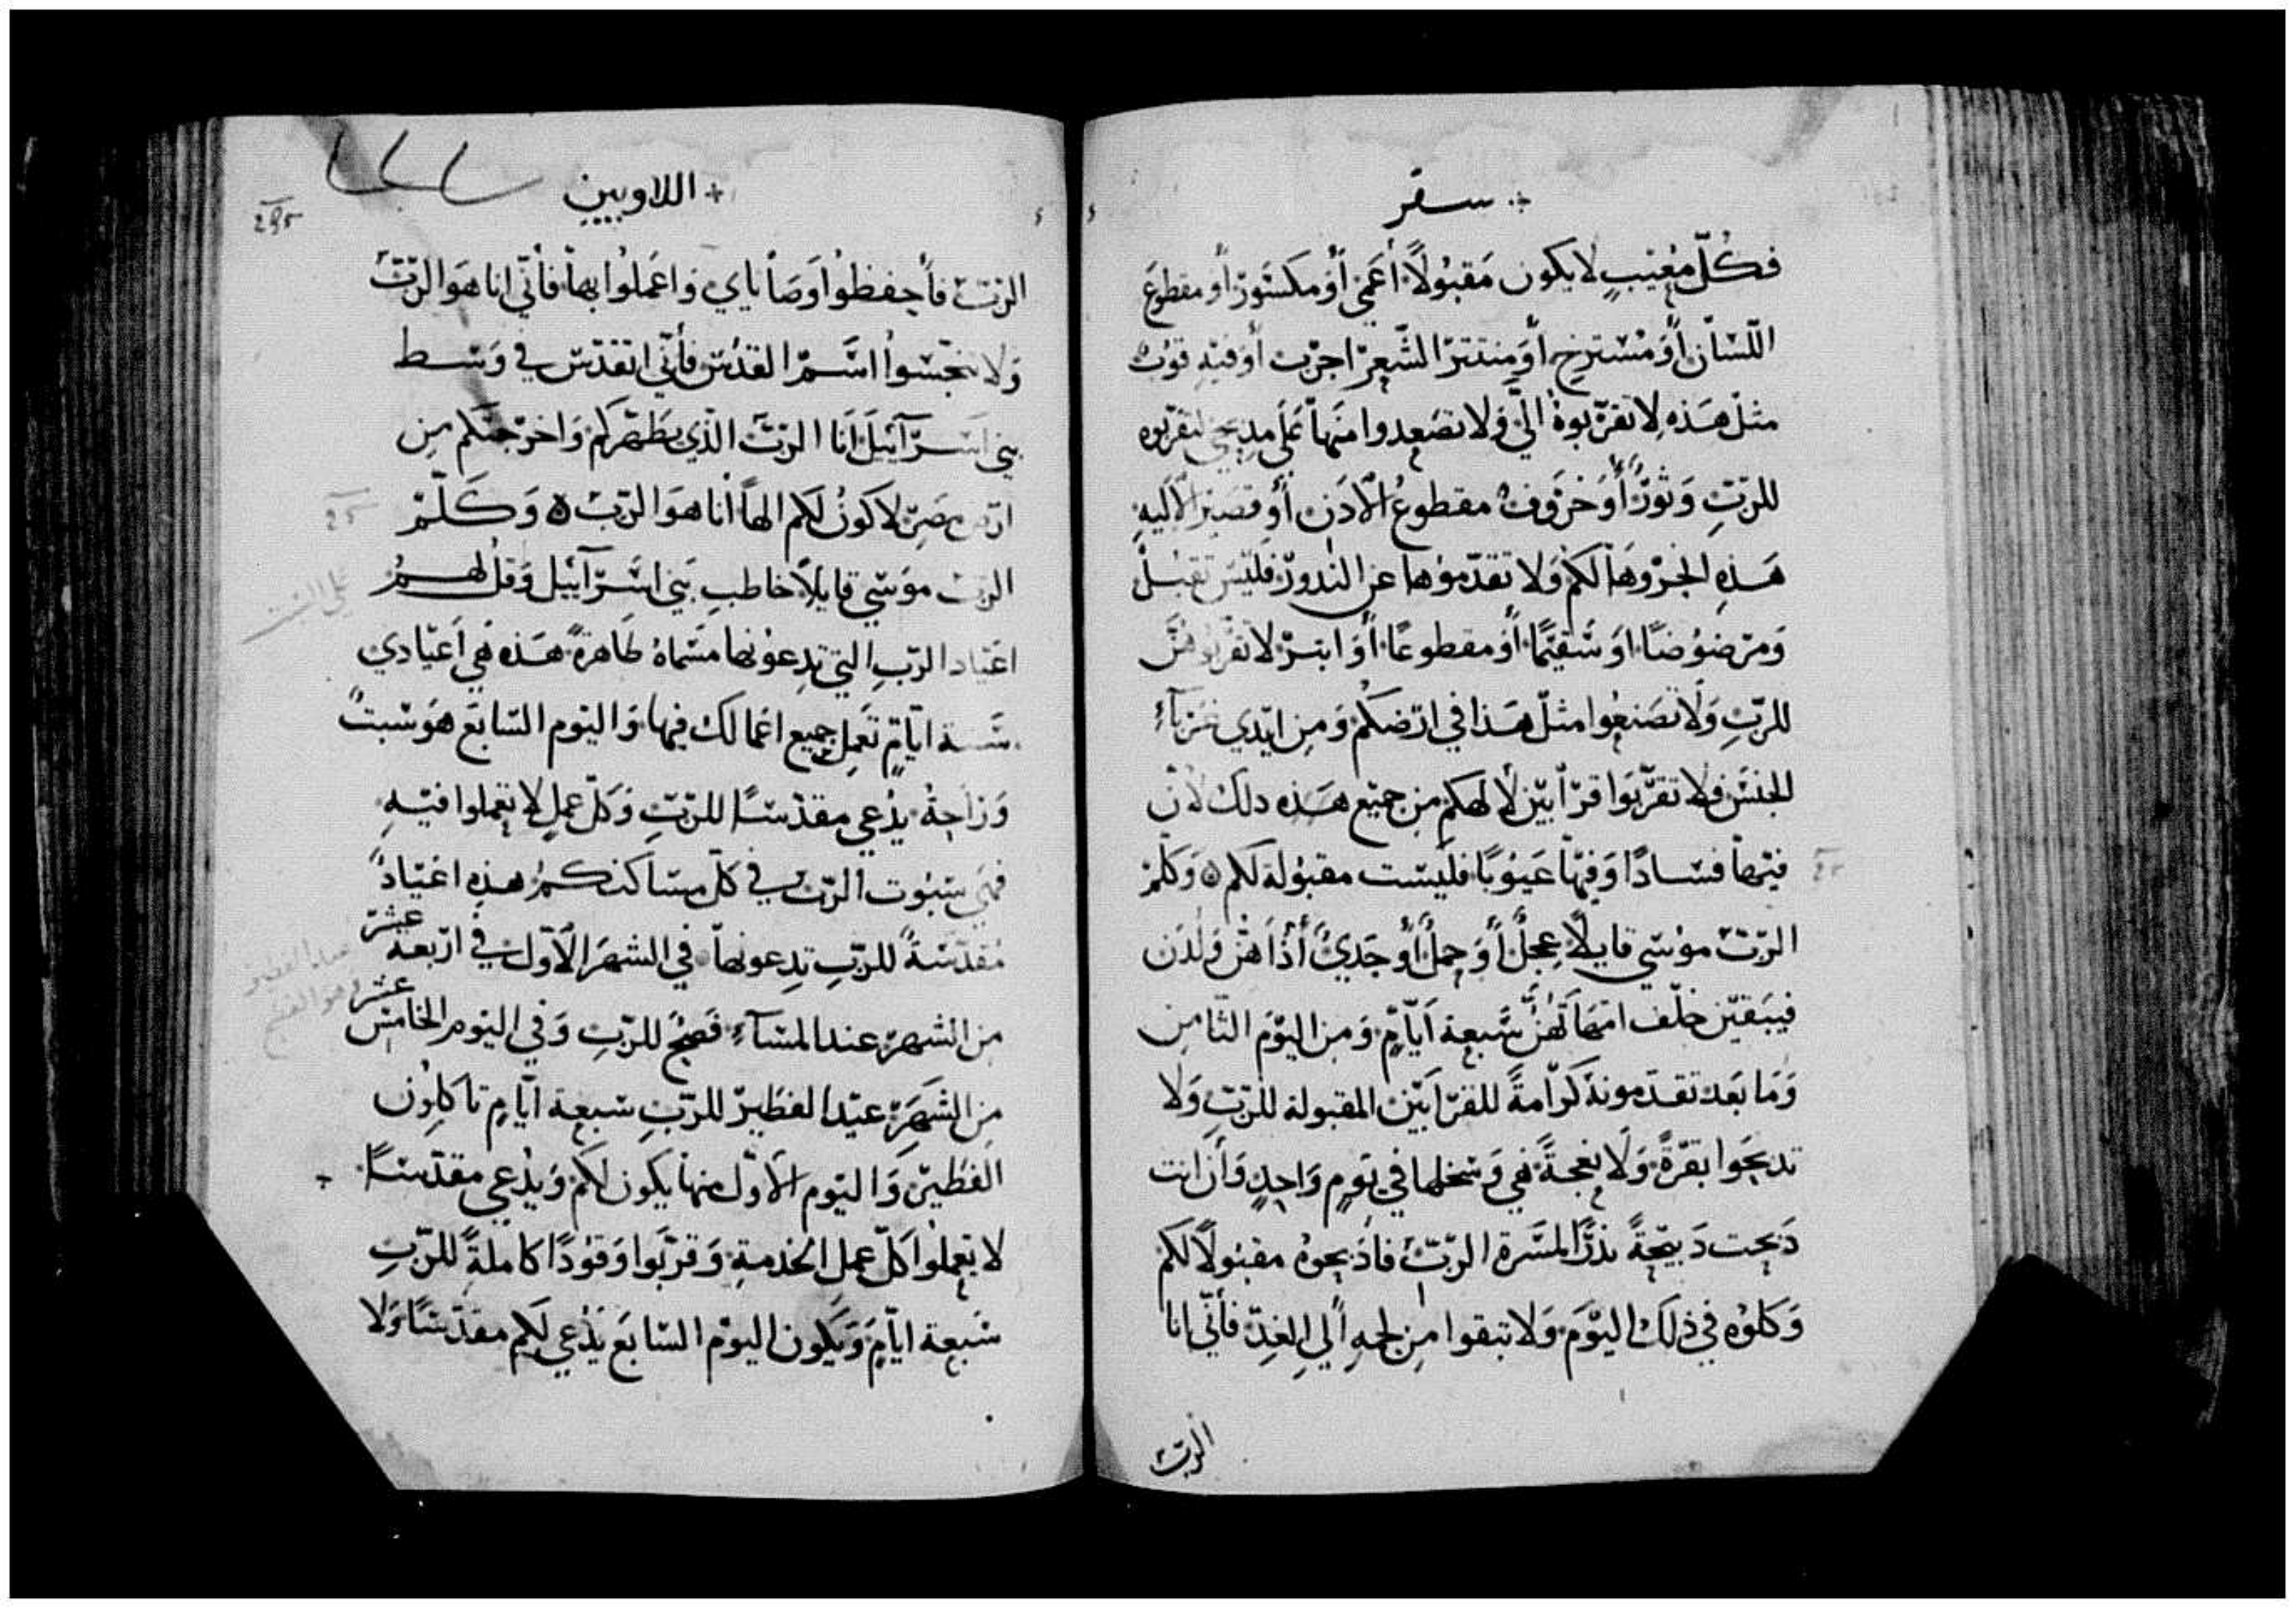 سفر
فكُلّ معُيَبٍ لا يكون مَقبُولاً أعَمىَ أوَ مكسَورٌ أو مقطوعَ
اللّسَان أوَ مُسَترخٍ أو مِنتترَ الشّعِرّ اجرَب أوَ فيَهِ قوَبٌ
مثلَ هَذهِ لا تقرّبوهُ اليَّ وَلا تصَعدوا مَنهاَ عَلىَ مدبحي لتقرّبوه
للرّبّ وَثورٌ أوَ خرَوفٌ مقطوعُ الأدَن أوَ قصَير الاَليهِ
هَذهِ اجَزرُوهَا لكمُ وَلا تقدّموُها عن الندورّ فليَسَ تقبَلْ
وَمرّضوُضًا اوَ سَقيَمًا أوَ مقطوعًا أوَ ابترّ لا تقرّبوُهُنَّ
للرّبّ وَلَا تصَنعُوا مثلَ هَذا في ارَضكمُ وَمِن ايَدي غرَبآءِ
الجنسَ فلا تقرَّبوَا قرّابيّن لألهكم مِن جميَع هَذه دلكَ لأنّ
فيَها فسَادًا وَفيَها عَيوُبًا فليَسَت مقبُولة لكم ۞ وَكلّمَ
الرّبّ موُسَي قايلاً عِجلٌ أوَ حمِلٌ أوَ جَديٌ أذَا هنّ وَلدَن
فيَبَقيّن خلَف امّهاَتهُنَّ سَبعة أيَّامٍ وَمِن اليَوَم الثّامِن
وَمَا بَعَد تقدَمونهُ كرَامةً للقرّابَيّن المقبولة للرّبّ وَلَا
تدبحَوا بقَرَةً وَلَا نعَجةً هيَ وَسَخلها في يَوَمٍ وَاحِدٍ وَأن انت
دَبحت دَبيَحةً نذرًا لمسَرة الرّبّ فادَبحوهُ مقبُولاً لكم
وَكلوُه في ذلكَ اليَوّمَ وَلا تبقوا مِن لحمهِ اليَ الغِدّ فأنّي انا
الربّ
اللاويين
295
الرّبّ فأحفظوُا وَصَاياي وَاعَملوُا بهاّ فأنّي انا هوَ الرّبّ
وَلا تنجّسَوا اسَمَ القدُسَ فأنّي اتقدّسَ في وَسَط
بني اسَرآئيلَ أنَا الرّبّ الذّي يطَهّركم وَاخرَجتكم مِن
ارَض مصَرّ لاكوُن لكم الهاً أنا هوَ الرّبّ ۞ وَكَلّمَ
الربّ موَسَي قايلاً خاطبِ بَني اسَرّآئيل وَقل لهمُ
اعَيَاد الرّبِ التي تدِعوُنها مسَماهُ طَاهرةً هَذه هَي أعَيّادي
سَتة ايّامٍ تعَمِل جميع اعَمالك فيها وَاليَوم السَّابَع هوَ سَبتٌ
وَرَاحةُ يُدعي مقدّسَا للرّبّ وَكلّ عملٍ لا تعملوا فيَهِ
فهيَ سَبوُت الرّبّ في كلّ مسَاكنكمُ هذهِ اعَيَادٌ
مُقدّسَةً للرّبِ تدِعوُنهاَ في الشهرَ الأوّلَ في ارّبعة عشَرَ
مِن الشهرّ عند المسَآءِ فصَحٌ للرّبّ وَفي اليَوم الخامسَ عشر
مِن الشهَرّ عيَد الفطَيرّ للرّبّ سَبعة ايّامٍ تاكلوُن
الفطَيرّ وَاليَوم الاوّل منها يَكون لكم وَيُدعي مقدّسَا
لا تعملوُا كلّ عمل الخدمةِ وَقرّبوَا وَقوُدًا كاملةً للرّبّ
سَبعة ايّامٍ وَيَكون اليَوم السّابَع يَدعي لكم مقدّسَا وَلا
علي السبت